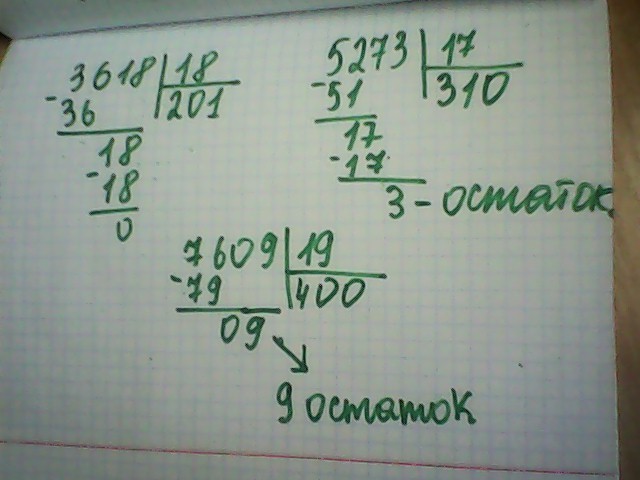 3618 18
-36 201
18
-18
0
5273 17
-51 310
17
-17
3 - остаток
7609 19
-79 400
09
9 остаток